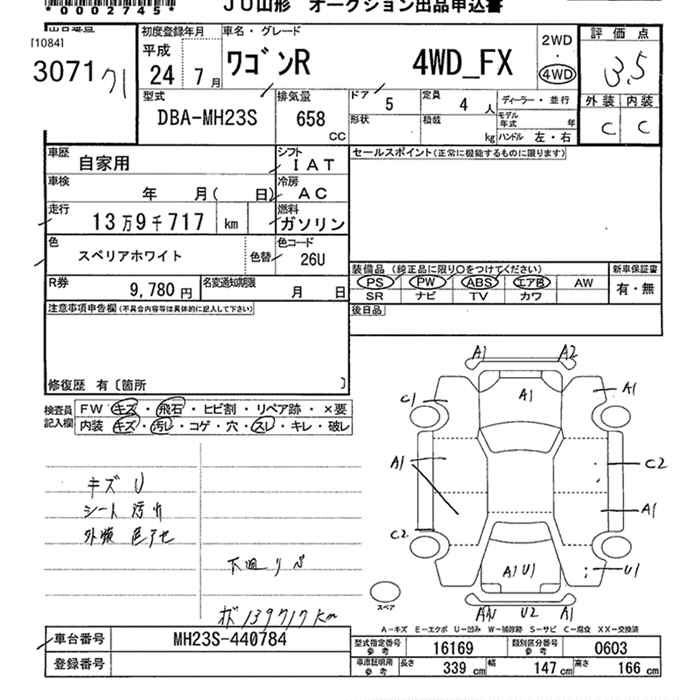 *0002745*
JU山形 オークション出品申込書
[1084]
3071 71
初度登録年月
平成 24年 7月
車名・グレード
ワゴンR 4WD_FX
2WD
・
4WD
評価点
3.5
外装 内装
C C
型式
DBA-MH23S
排気量
658 CC
ドア 5
定員 4 人
形状
積載 kg
ディーラー・並行
モデル年式 年
ハンドル 左・右
車歴 自家用
シフト IAT
セールスポイント(正常に機能するものに限ります)
車検 年 月( 日)
冷房 AC
走行 13万9千717 km
燃料 ガソリン
色 スペリアホワイト
色替
色コード 26U
R券 9,780円
名変通知期限 月 日
装備品 (純正品に限り○をつけてください)
新車保証書
PS PW ABS エアB AW
SR ナビ TV カワ
有・無
後日品
注意事項申告欄(不具合内容等は具体的に記入して下さい)
修復歴 有〔箇所 〕
検査員記入欄
FW キズ・飛石・ヒビ割・リペア跡・×要
内装 キズ・汚レ・コゲ・穴・スレ・キレ・破レ
キズ U
シート 汚れ
外装 色アセ
下廻りペ
メ 139717km
A1 A2
A1 A1
C1
A1 C2
A1
C2
A1 U1 U1
スペア
U2 A1
A-キズ E-エクボ U-凹み W-補修跡 S-サビ C-腐食 XX-交換済
車台番号 MH23S-440784
登録番号
型式指定番号 参考 16169
類別区分番号 参考 0603
車庫証明用 参考
長さ 339 cm
幅 147 cm
高さ 166 cm